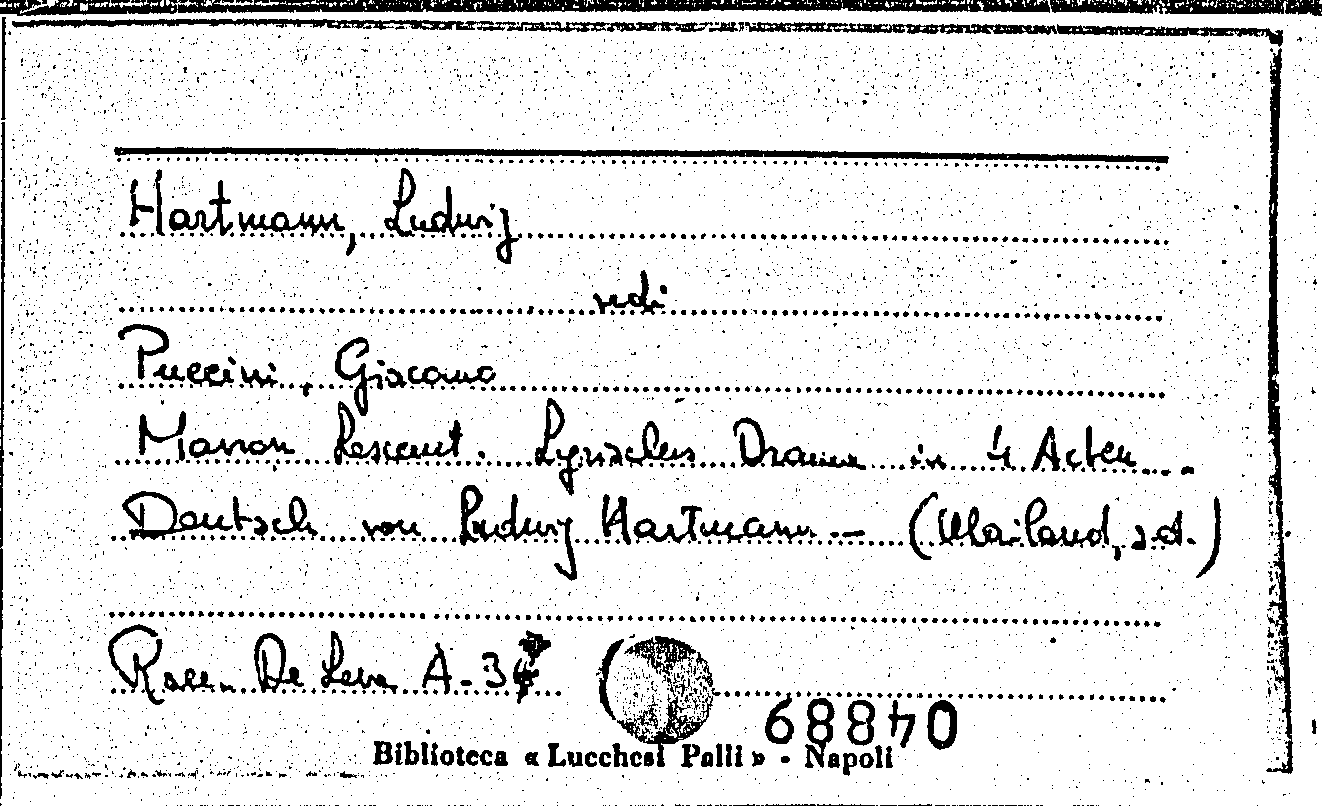 Hartmann, Ludwig
vedi
Puccini, Giacomo
Manon Lescaut. Lyrisches Drama in 4 Acten...
Deutsch von Ludwig Hartmann. — (Mailand, s.d.)
Racc. De Leva A-3
04889
Biblioteca « Lucchesi Palli » - Napoli